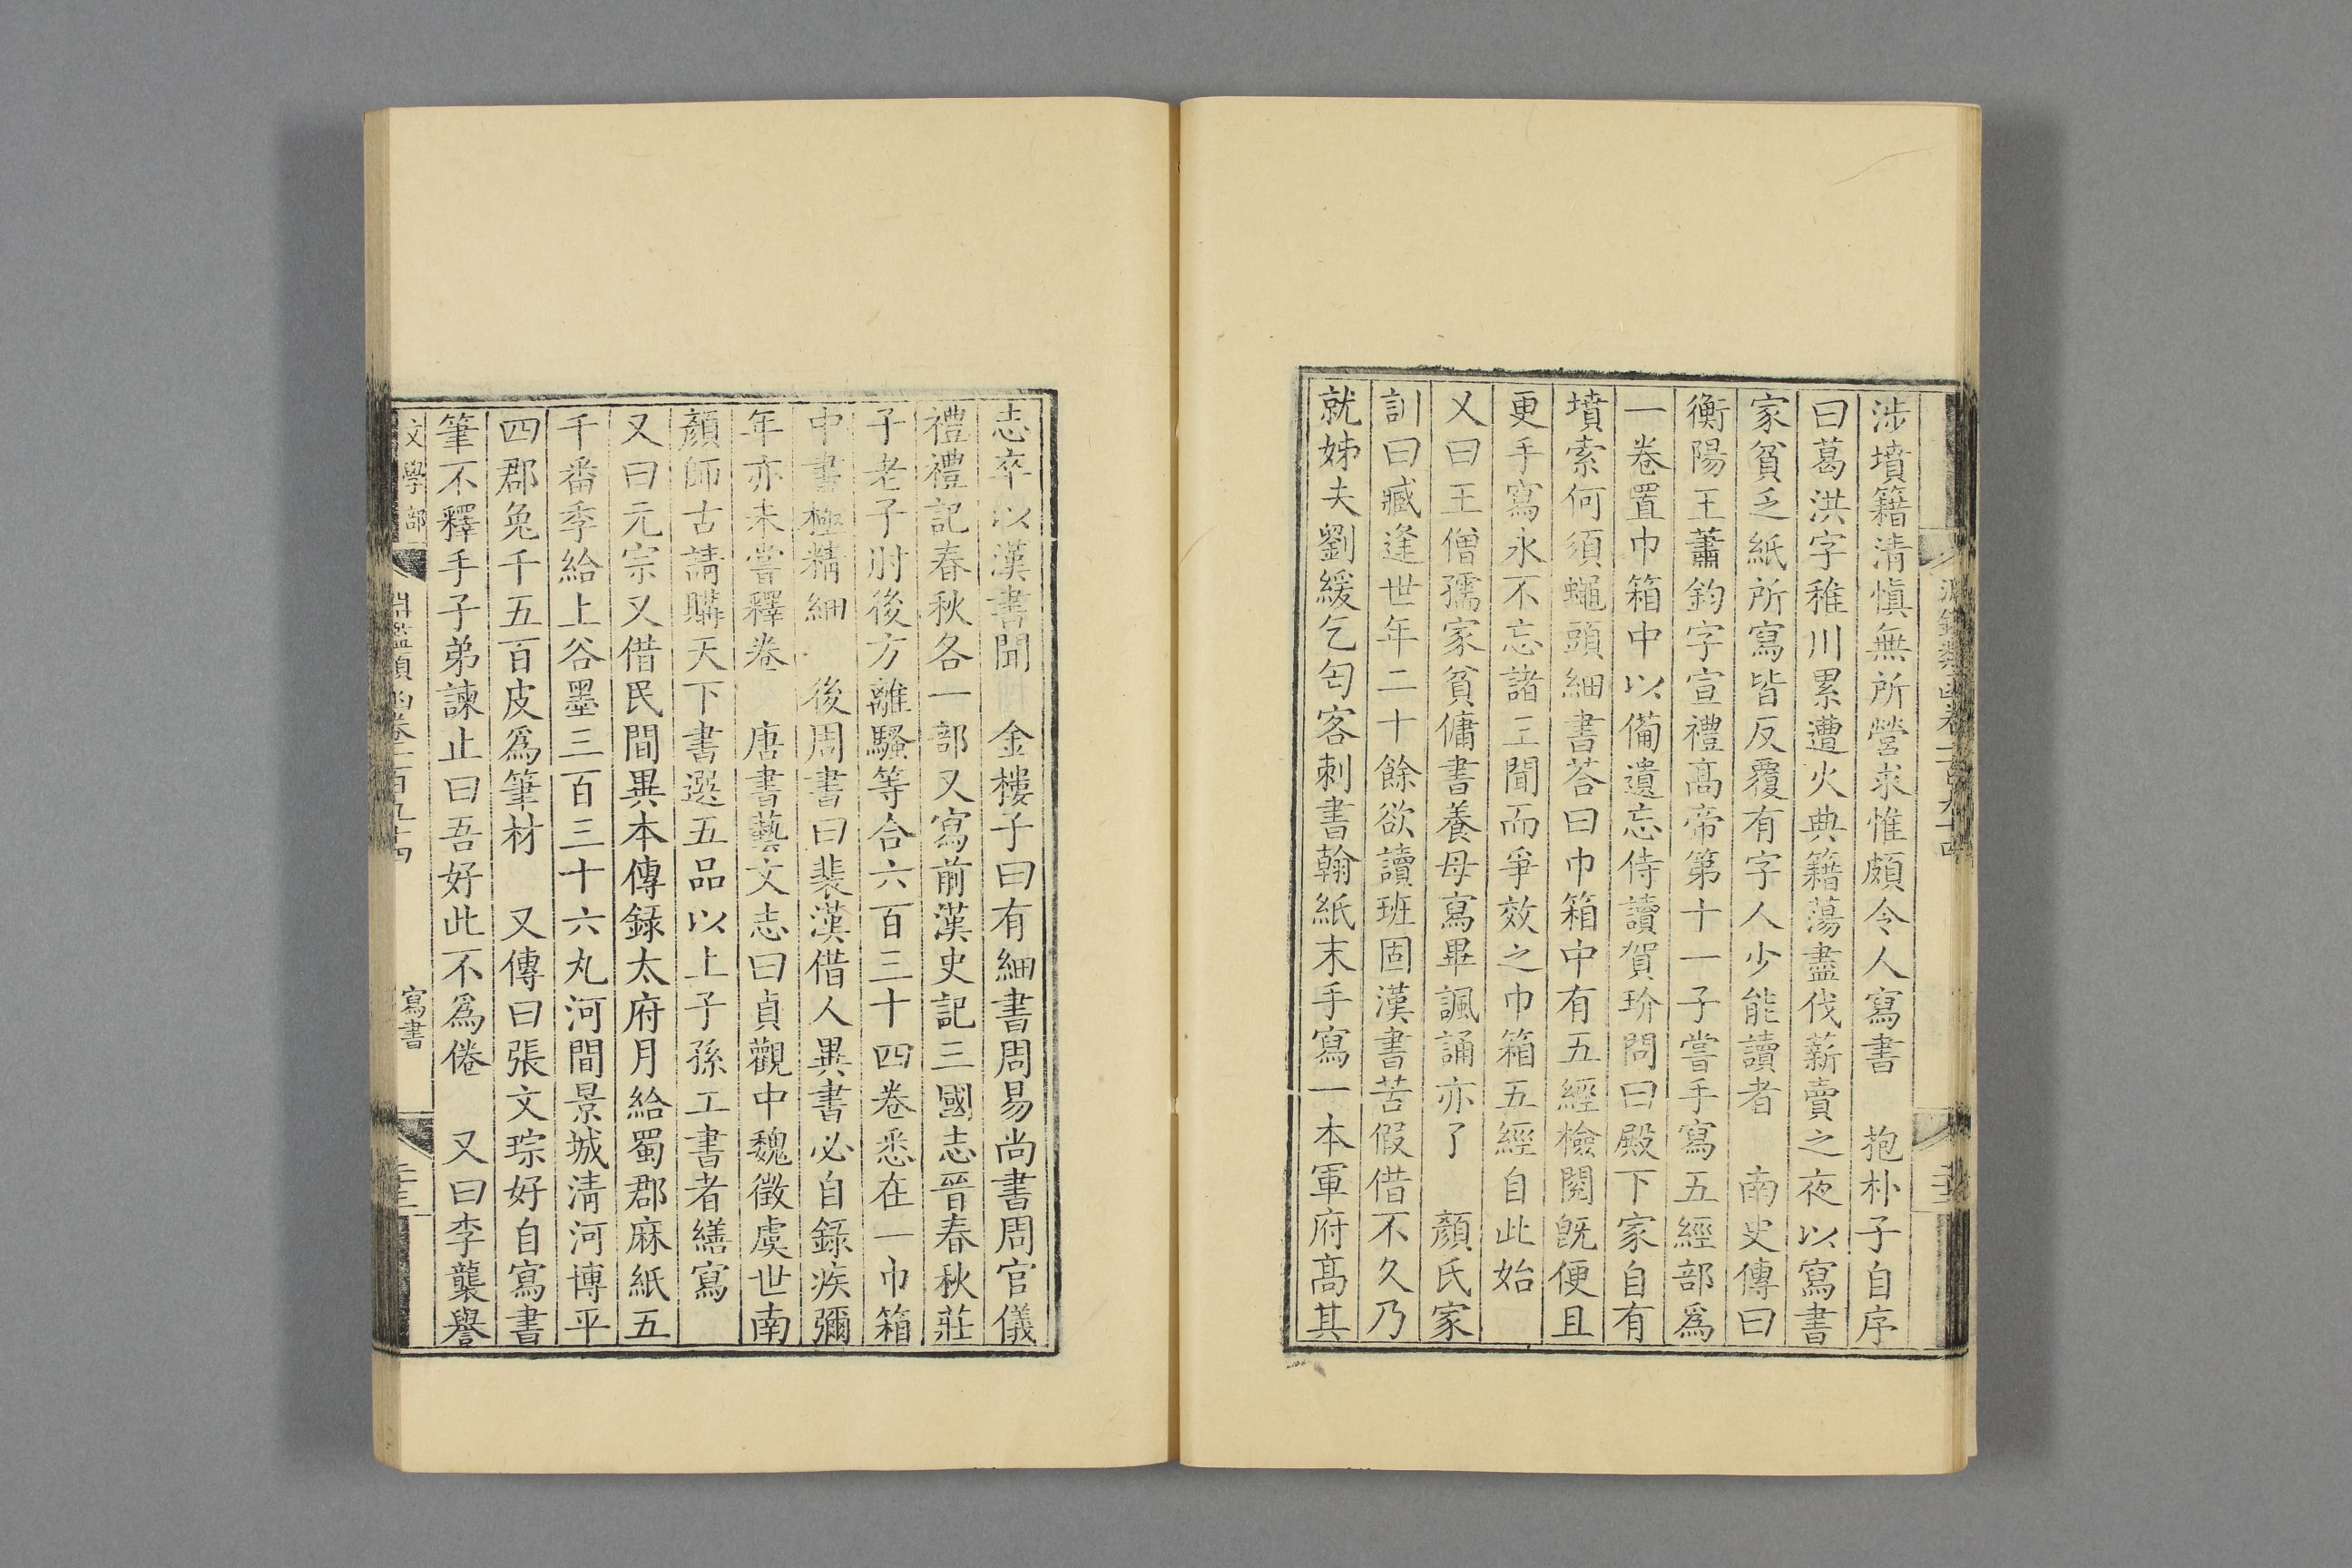 涉墳籍清愼無所營求惟頗令人寫書　抱朴子自序
曰葛洪字稚川累遭火典籍蕩盡伐薪賣之夜以寫書
家貧乏紙所寫皆反覆有字人少能讀者　南史傳曰
衡陽王蕭鈞字宣禮髙帝第十一子嘗手寫五經部爲
一卷置巾箱中以備遺忘侍讀賀玠問曰殿下家自有
墳索何須蠅頭細書荅曰巾箱中有五經檢閱旣便且
更手寫永不忘諸王聞而爭效之巾箱五經自此始
又曰王僧孺家貧傭書養母寫畢諷誦亦了　顏氏家
訓曰臧逢世年二十餘欲讀班固漢書苦假借不久乃
就姊夫劉緩乞匄客刺書翰紙末手寫一本軍府髙其
志卒以漢書聞　金樓子曰有細書周易尚書周官儀
禮禮記春秋各一部又寫前漢史記三國志晉春秋莊
子老子肘後方離騷等合六百三十四卷悉在一巾箱
中書極精細　後周書曰裴漢借人異書必自錄疾彌
年亦未嘗釋卷　唐書藝文志曰貞觀中魏徵虞世南
顏師古請購天下書選五品以上子孫工書者繕寫
又曰元宗又借民間異本傳録太府月給蜀郡麻紙五
千番季給上谷墨三百三十六丸河間景城淸河博平
四郡兔千五百皮爲筆材　又傳曰張文琮好自寫書
筆不釋手子弟諫止曰吾好此不爲倦　又曰李襲譽
文學部　淵鑑類函卷一百九十四　寫書